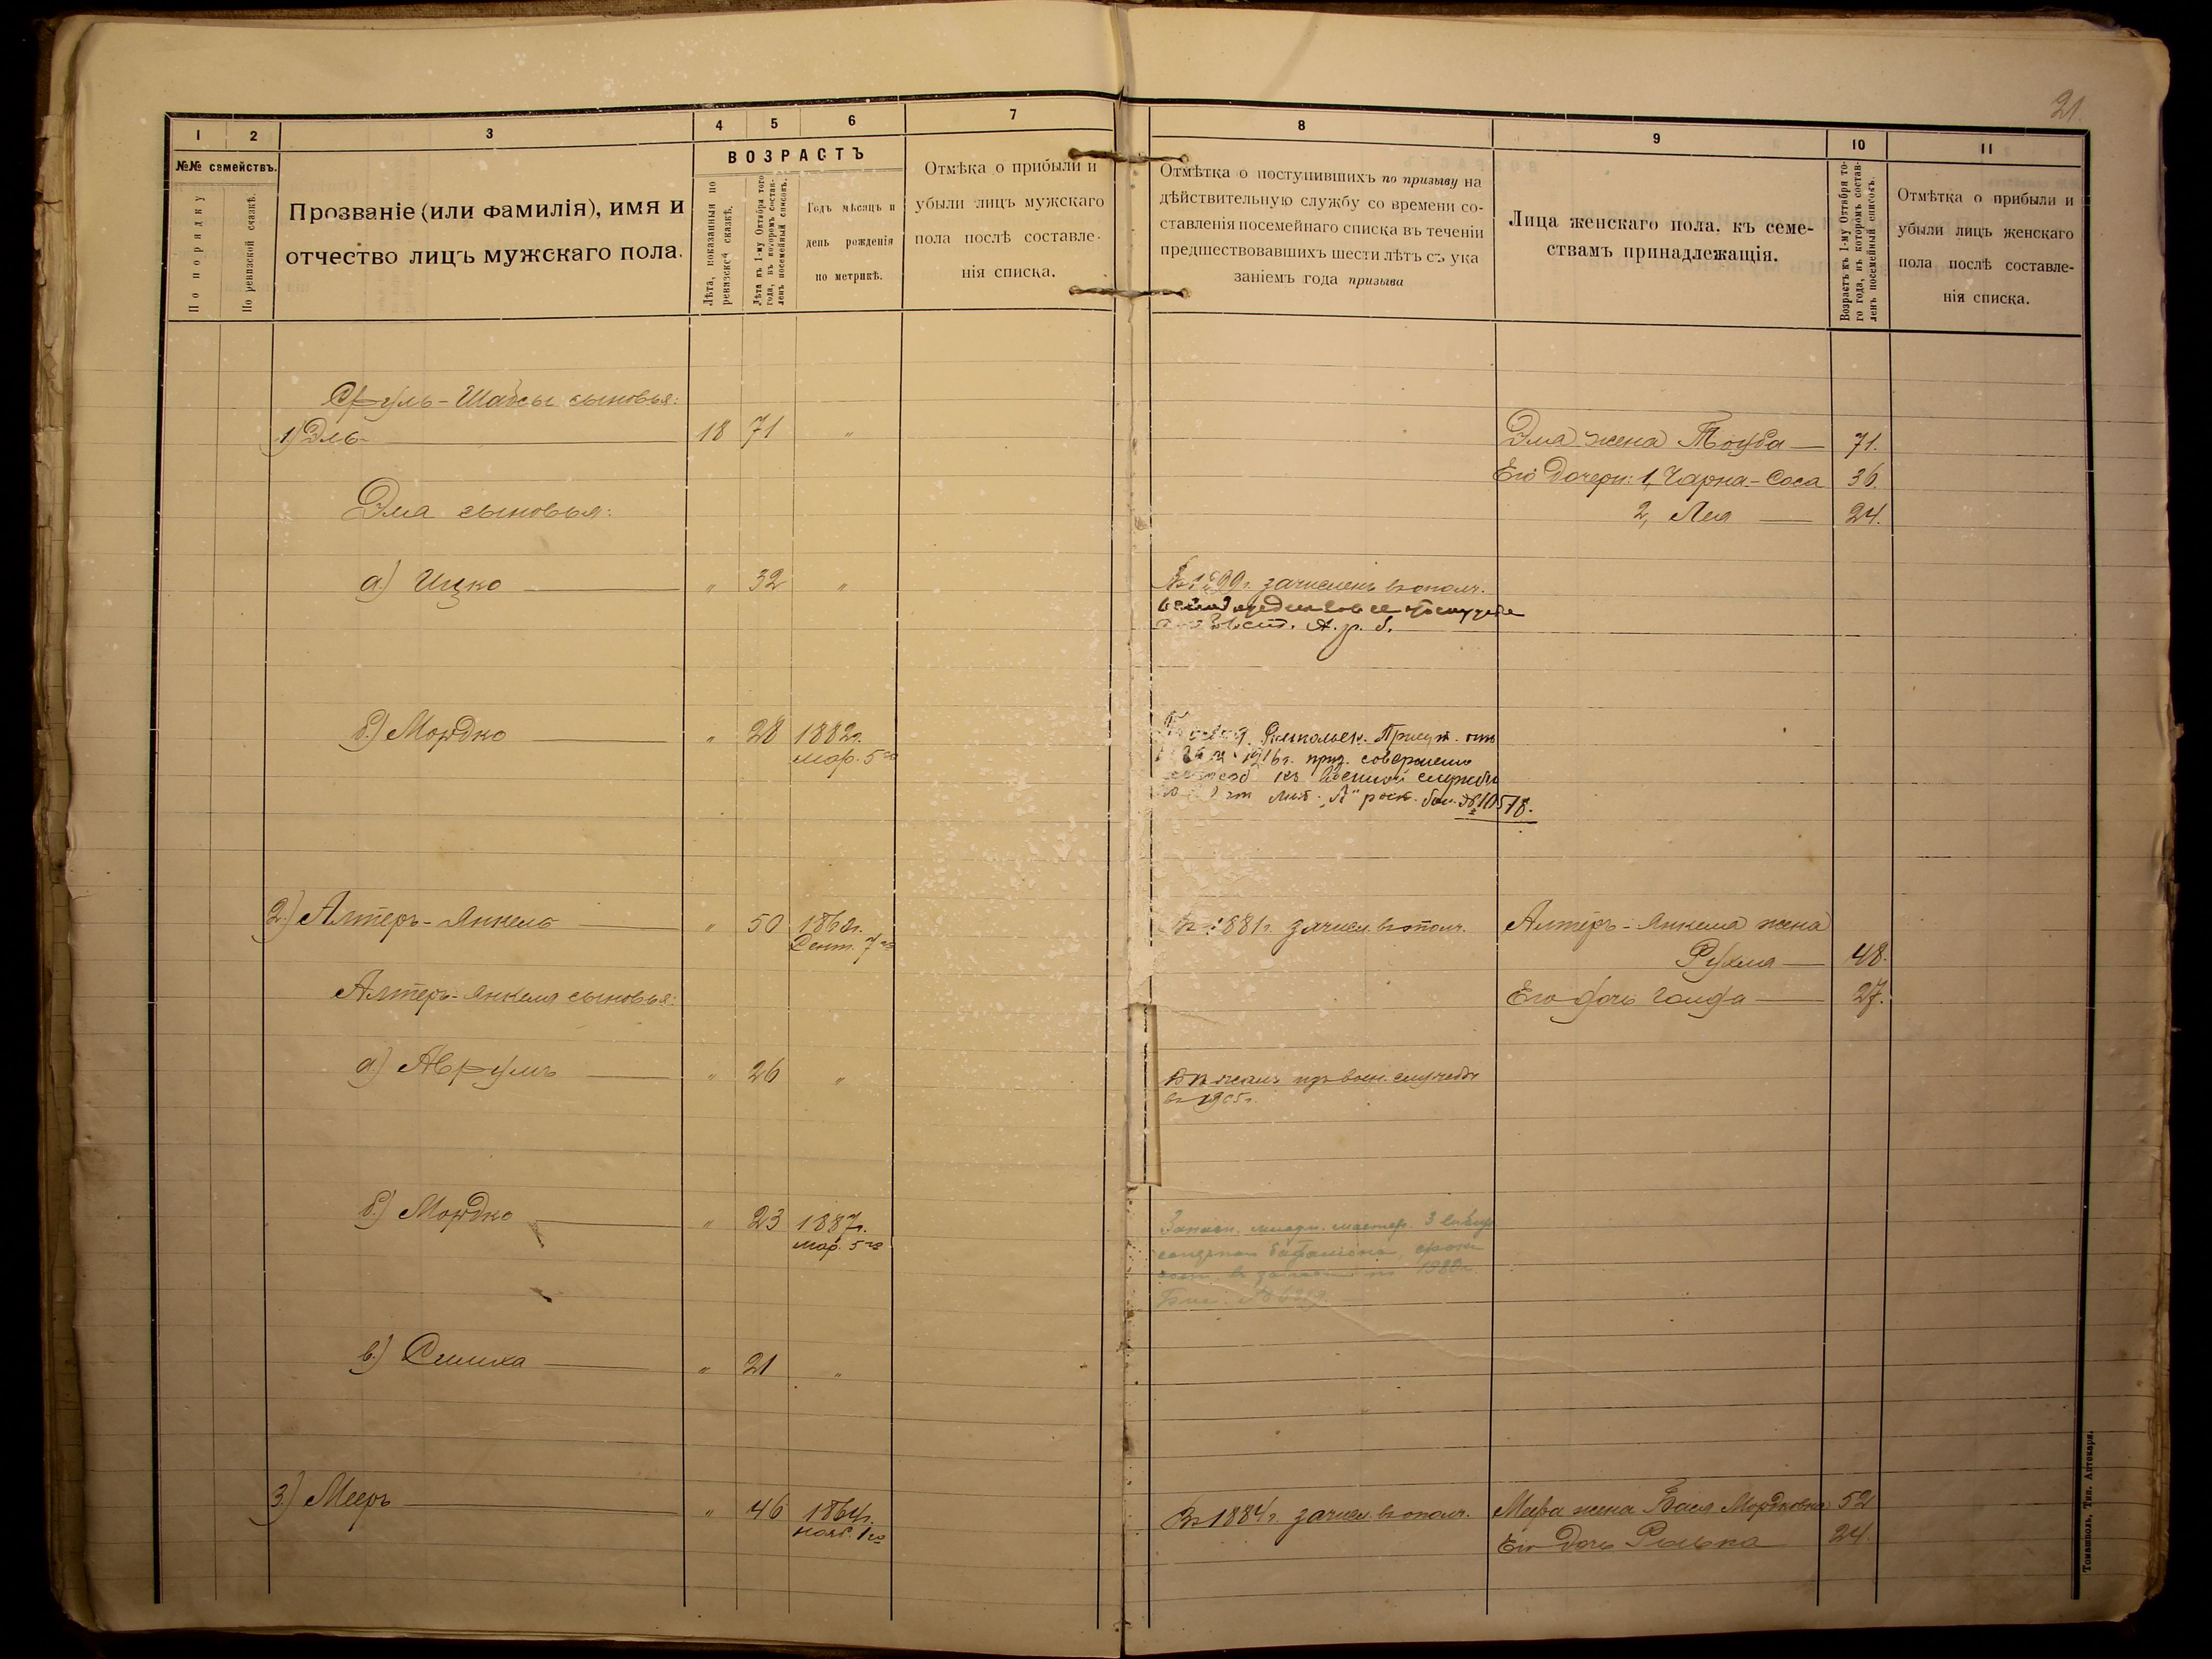 21.
1
2
3
4
5
6
7
8
9
10
11
№№ семействъ.
По порядку
По ревизской сказкѣ.
Прозваніе (или фамилія), имя и
отчество лицъ мужскаго пола.
ВОЗРАСТЪ
Лѣта, показанныя по
ревизской сказкѣ.
Лѣта къ 1-му Октября того
года, въ которомъ состав-
ленъ посемейный списокъ.
Годъ мѣсяцъ и
день рожденія
по метрикѣ.
Отмѣка о прибыли и
убыли лицъ мужскаго
пола послѣ составле-
нія списка.
Отмѣтка о поступившихъ по призыву на
дѣйствительную службу со времени со-
ставленія посемейнаго списка въ теченіи
предшествовавшихъ шести лѣтъ съ ука
заніемъ года призыва
Лица женскаго пола, къ семе-
ствамъ принадлежащія.
Возрастъ къ 1-му Октября то-
го года, въ которомъ состав-
ленъ посемейный списокъ.
Отмѣтка о прибыли и
убыли лицъ женскаго
пола послѣ составле-
нія списка.
Сруль-Шабсы сыновья:
1) Эль — 18 71 "
Эля жена Тоуба — 71.
Его дочери: 1, Чарна-Соса 36.
2, Лея — 24.
Эля сыновья:
а.) Ицко — " 32 "
Въ 1899г. зачисленъ въ ополч.
А. г. д.
б.) Мордко — " 28 1882г.
Мар. 5го
Присут. отъ
1916г. приз. совершенно
къ военной службѣ
"А" №10578.
2.) Алтеръ-Янкель — " 50 1860г.
Сент. 7го
Въ 1881г. зачисл. въ ополч.
Алтеръ-Янкеля жена
Рухля — 48.
Алтеръ-Янкеля сыновья:
Его дочь Голда — 27.
а) Аврумъ — " 26 "
воен. службы
въ 1905г.
б.) Мордко — " 23 1887г.
Мар. 5го
Запасн. младш. мастер. 3
сапернаго баталіона, срокъ
в.) Симха — " 21 "
3.) Мееръ — " 46 1864г.
Нояб. 1го
Въ 1884г. зачисл. въ ополч.
Меера жена Бася Мордковна 52
Его дочь Рылька 24.
Томашполь, Тип. Аптекаря.